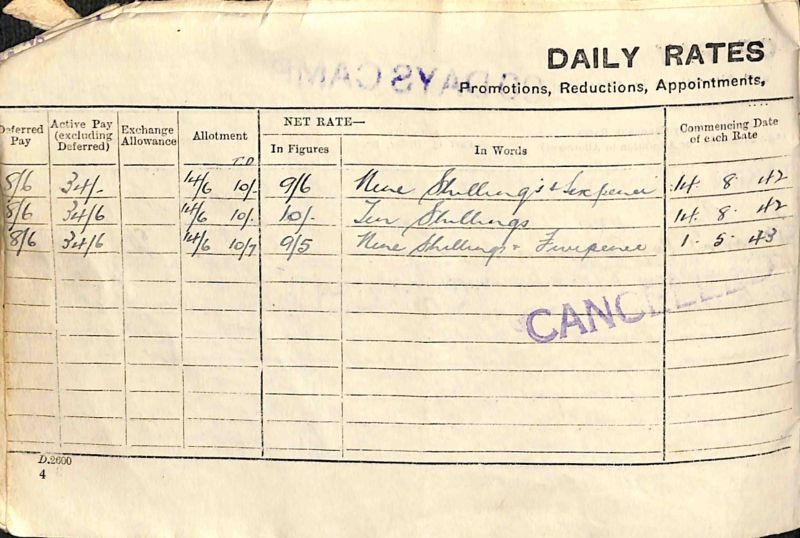 DAILY RATES
Promotions, Reductions, Appointments,
Deferred Pay
Active Pay (excluding Deferred)
Exchange Allowance
Allotment
NET RATE—
In Figures
In Words
Commencing Date of each Rate
T.D
8/6 34/- 14/6 10/- 9/6 Nine Shillings & Sixpence 14 8 42
8/6 34/6 14/6 10/- 10/- Ten Shillings 14 8 42
8/6 34/6 14/6 10/7 9/5 Nine Shillings & Fivepence 1 5 43
CANCELLED
D.2600
4